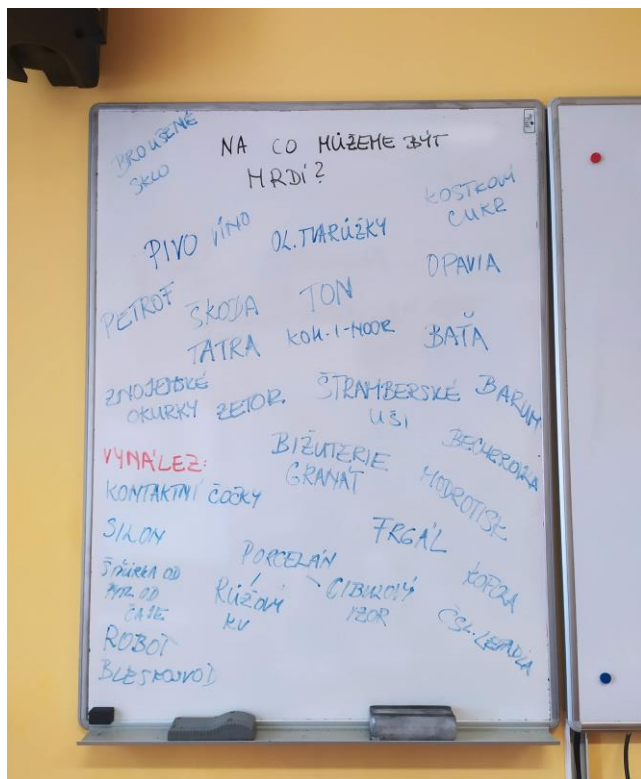 NA CO MŮŽEME BÝT
HRDÍ?
BROUŠENÉ
SKLO
KOSTKOVÝ
CUKR
PIVO VÍNO
OL. TVARŮŽKY
OPAVIA
PETROF
ŠKODA
TON
TATRA
KOH-I-NOOR
BAŤA
ZNOJEMSKÉ
OKURKY
ZETOR
ŠTRAMBERSKÉ
UŠI
BARUM
BECHEROVKA
BIŽUTERIE
GRANÁT
MODROTISK
VYNÁLEZ:
KONTAKTNÍ ČOČKY
SILON
FRGÁL
KOFOLA
PORCELÁN
RŮŽOVÝ
CIBULOVÝ
VZOR
ČSL. LETADLA
OD
OD
ČAJE
ROBOT
BLESKOSVOD